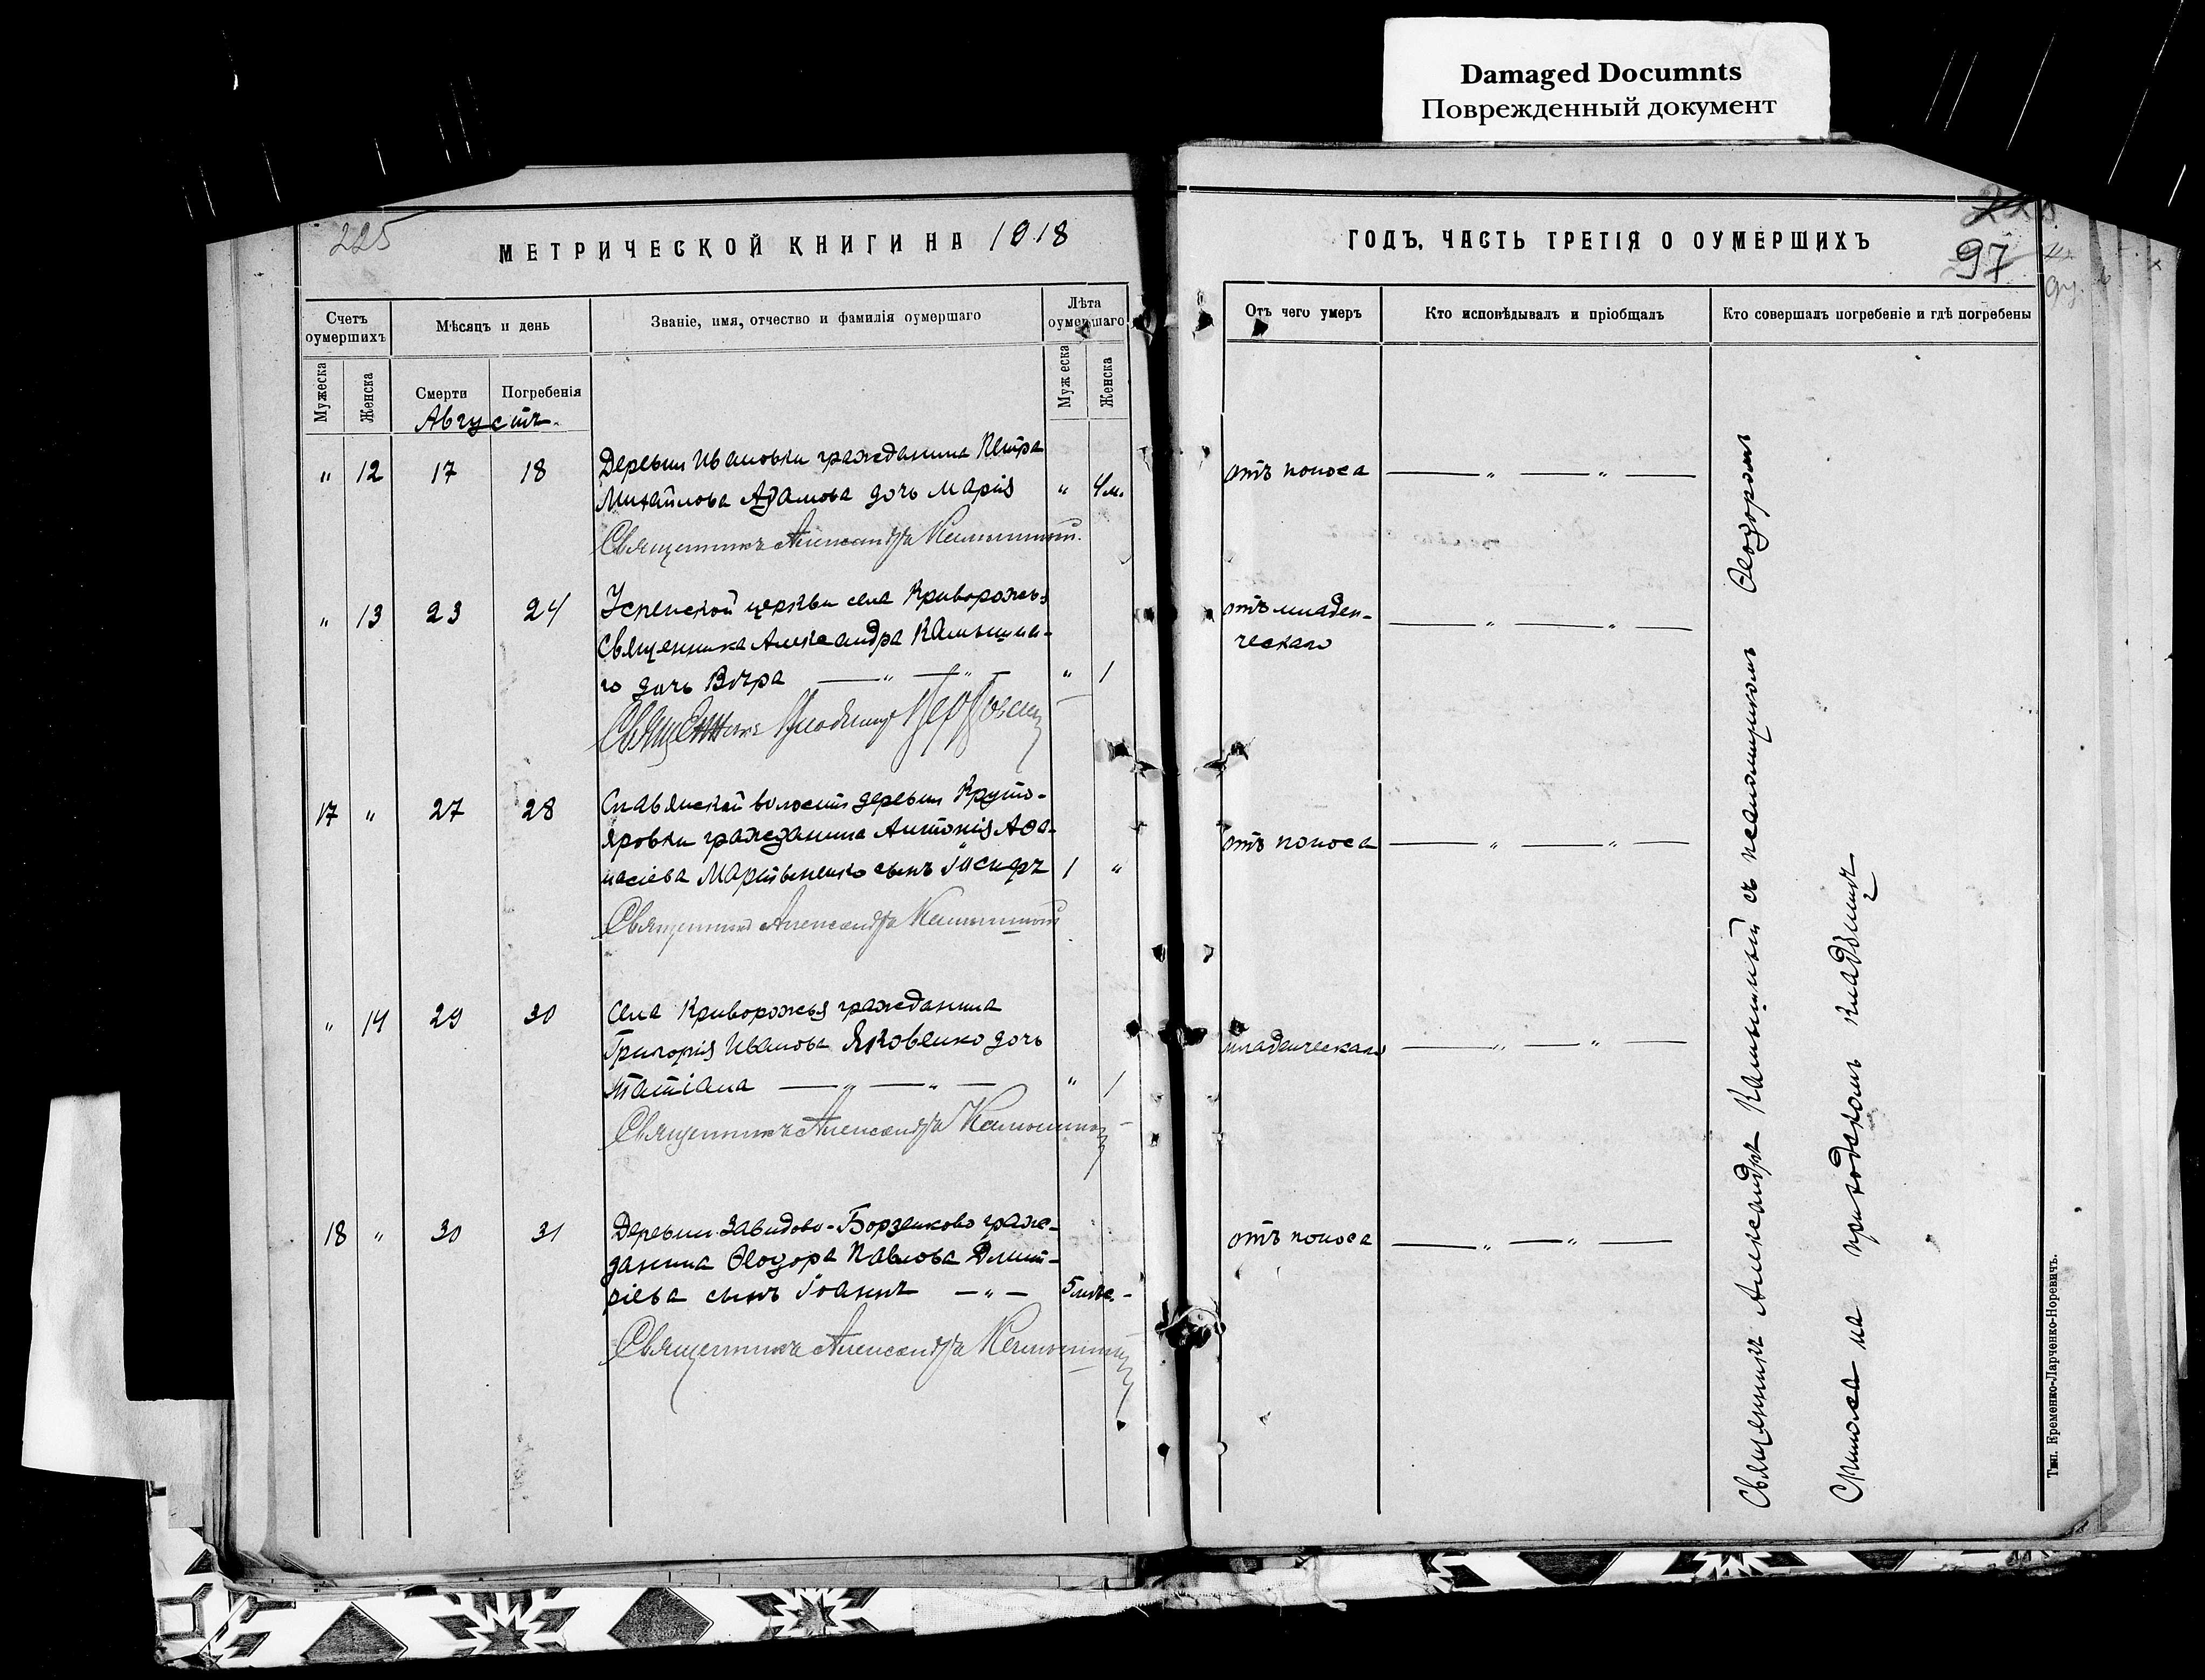 Damaged Documnts
Поврежденный документ
225
МЕТРИЧЕСКОЙ КНИГИ НА 1918
Счетъ оумершихъ
Мѣсяцъ и день
Званіе, имя, отчество и фамилія оумершаго
Лѣта оумершаго
Мужеска
Женска
Смерти
Погребенія
Муж еска
Женска
Августъ.
" 12 17 18 Деревни Ивановки гражданина Петра
Михайлова Адамова дочь Марія " 4 м.
Священникъ Александръ Камышный.
" 13 23 24 Успенской церкви села Криворожья
Священника Александра Камышна-
го дочь Вѣра — " — " — " 1
Священникъ
17 " 27 28 Славянской волости деревни Круто-
яровки гражданина Антонія Аѳа-
насіева Мартыненко сынъ Іосифъ 1 "
Священникъ Александръ Камышный
" 14 29 30 Села Криворожья гражданина
Григорія Иванова Яковенко дочь
Татіана — " — " — " 1
Священникъ Александръ Камышный
18 " 30 31 Деревни Завидово-Борзенково граж-
данина Ѳеодора Павлова Дмит-
ріева сынъ Іоаннъ — " — 5 мѣс. -
Священникъ Александръ Камышный
ГОДЪ, ЧАСТЬ ТРЕТІЯ О ОУМЕРШИХЪ
97
Отъ чего умеръ
Кто исповѣдывалъ и пріобщалъ
Кто совершалъ погребеніе и гдѣ погребены
отъ поноса — " — " —
отъ младен-
ческаго — " — " —
отъ поноса — " — " —
младенческаго — " — " —
отъ поноса — " — " —
Священникъ Александръ Камышный съ псаломщикомъ Ѳеодоромъ
на приходскомъ кладбищѣ
Тип. Кременко-Ларченко-Норевичъ.